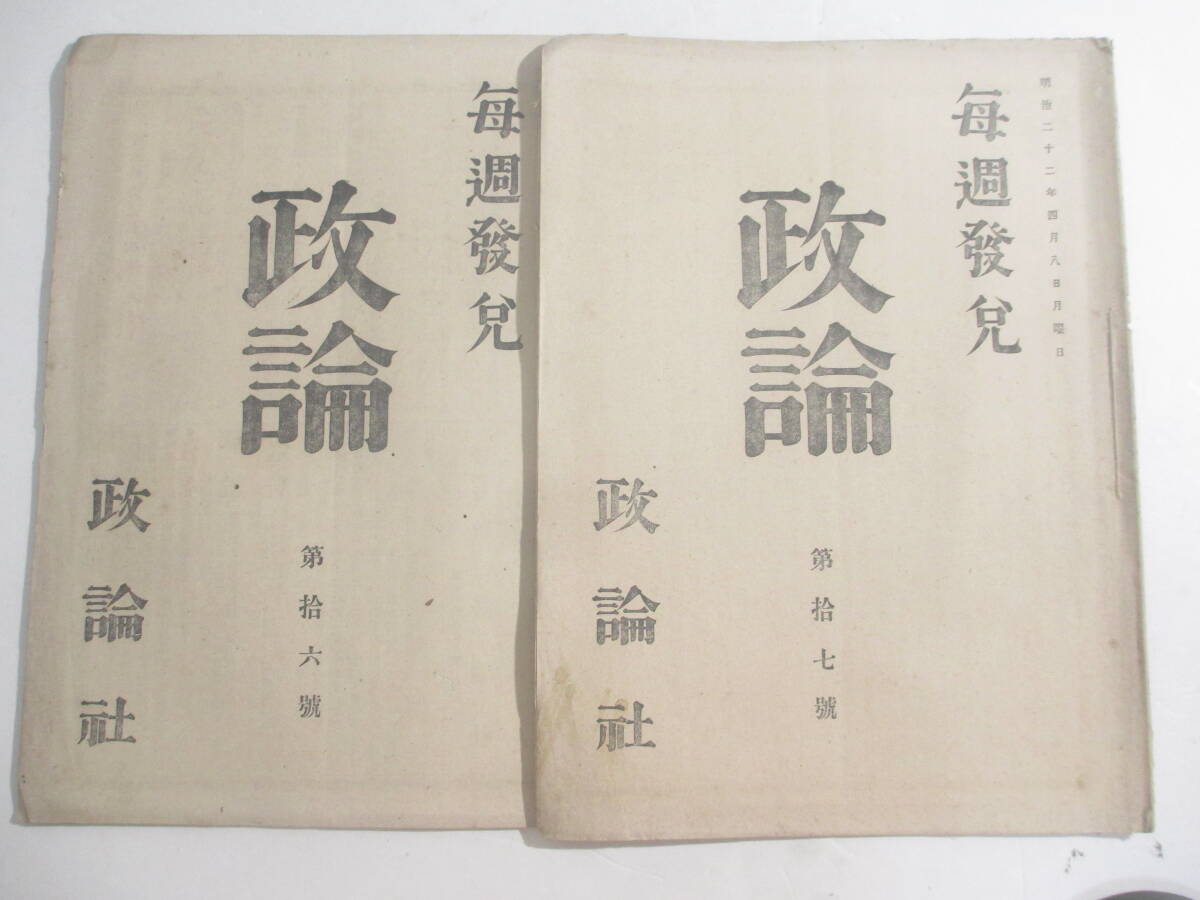 明治二十二年四月八日月曜日
每週發兌
政論
第拾七號
政論社
每週發兌
政論
第拾六號
政論社